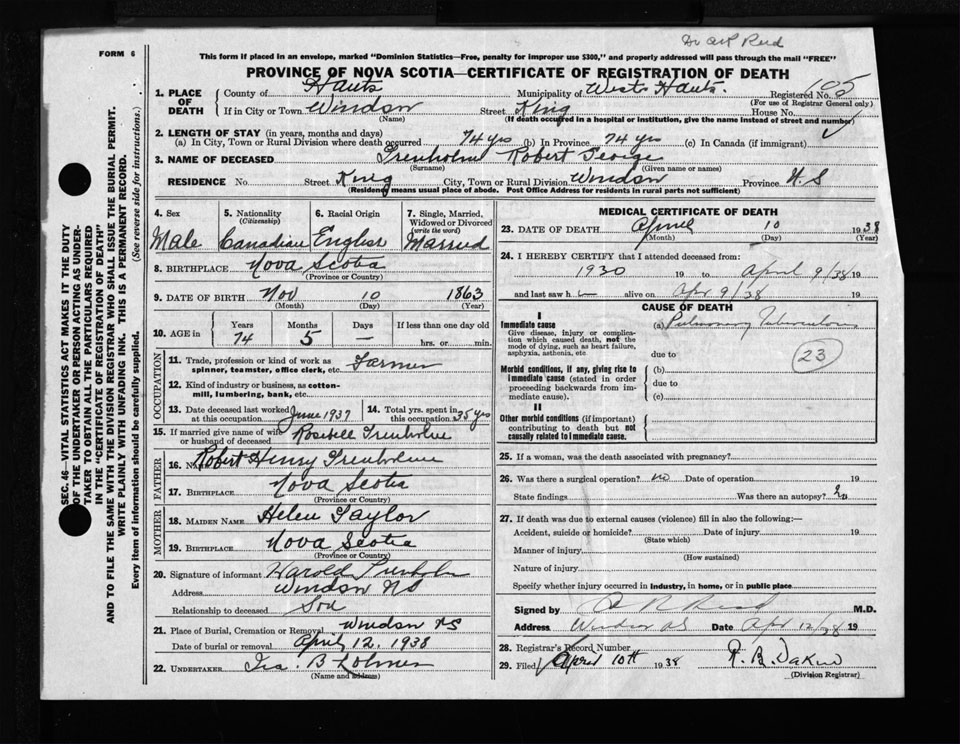 Dr A R Reid
FORM 6
This form if placed in an envelope, marked "Dominion Statistics—Free, penalty for improper use $300," and properly addressed will pass through the mail "FREE"
PROVINCE OF NOVA SCOTIA—CERTIFICATE OF REGISTRATION OF DEATH
1. PLACE OF DEATH
County of Hants Municipality of West Hants. Registered No.
(For use of Registrar General only)
If in City or Town Windsor Street King House No.
(Name) (If death occurred in a hospital or institution, give the name instead of street and number)
2. LENGTH OF STAY (in years, months and days)
(a) In City, Town or Rural Division where death occurred 74 yrs (b) In Province 74 yrs (c) In Canada (if immigrant)
3. NAME OF DECEASED Trenholm Robert George
(Surname) (Given name or names)
RESIDENCE No. Street King City, Town or Rural Division Windsor Province N.S
(Residence means usual place of abode. Post Office Address for residents in rural parts not sufficient)
4. Sex Male
5. Nationality (Citizenship) Canadian
6. Racial Origin English
7. Single, Married, Widowed or Divorced (write the word) Married
8. BIRTHPLACE Nova Scotia
(Province or Country)
9. DATE OF BIRTH Nov 10 1863
(Month) (Day) (Year)
10. AGE in Years Months Days If less than one day old
74 5 — hrs. or min.
OCCUPATION
11. Trade, profession or kind of work as spinner, teamster, office clerk, etc. Farmer
12. Kind of industry or business, as cotton-mill, lumbering, bank, etc.
13. Date deceased last worked at this occupation June 1937
14. Total yrs. spent in this occupation 35 yrs
15. If married give name of wife or husband of deceased Rosebell Trenholme
FATHER
16. Name Robert Henry Trenholme
17. BIRTHPLACE Nova Scotia
(Province or Country)
MOTHER
18. MAIDEN NAME Helen Taylor
19. BIRTHPLACE Nova Scotia
(Province or Country)
20. Signature of informant Harold Trenholm
Address Windsor NS
Relationship to deceased Son
21. Place of Burial, Cremation or Removal Windsor NS
Date of burial or removal April 12, 1938
22. UNDERTAKER
(Name and address)
MEDICAL CERTIFICATE OF DEATH
23. DATE OF DEATH April 10 1938
(Month) (Day) (Year)
24. I HEREBY CERTIFY that I attended deceased from:
1930 19 to April 9/38 19
and last saw h alive on Apr 9/38 19
CAUSE OF DEATH
I
Immediate cause (a) Pulmonary Tuberculosis
Give disease, injury or complication which caused death, not the mode of dying, such as heart failure, asphyxia, asthenia, etc. due to
23
Morbid conditions, if any, giving rise to immediate cause (stated in order proceeding backwards from immediate cause). (b)
due to
(c)
II
Other morbid conditions (if important) contributing to death but not causally related to immediate cause.
25. If a woman, was the death associated with pregnancy?
26. Was there a surgical operation? no Date of operation 19
State findings Was there an autopsy?
27. If death was due to external causes (violence) fill in also the following:—
Accident, suicide or homicide? Date of injury 19
(State which)
Manner of injury
(How sustained)
Nature of injury
Specify whether injury occurred in industry, in home, or in public place
Signed by A R Reid M.D.
Address Windsor NS Date Apr 12/38 19
28. Registrar's Record Number
29. Filed April 10th 1938
(Division Registrar)
SEC. 46—VITAL STATISTICS ACT MAKES IT THE DUTY
OF THE UNDERTAKER OR PERSON ACTING AS UNDER-
TAKER TO OBTAIN ALL THE PARTICULARS REQUIRED
IN THE "CERTIFICATE OF REGISTRATION OF DEATH"
AND TO FILE THE SAME WITH THE DIVISION REGISTRAR WHO SHALL ISSUE THE BURIAL PERMIT.
WRITE PLAINLY WITH UNFADING INK. THIS IS A PERMANENT RECORD.
Every item of information should be carefully supplied. (See reverse side for instructions.)